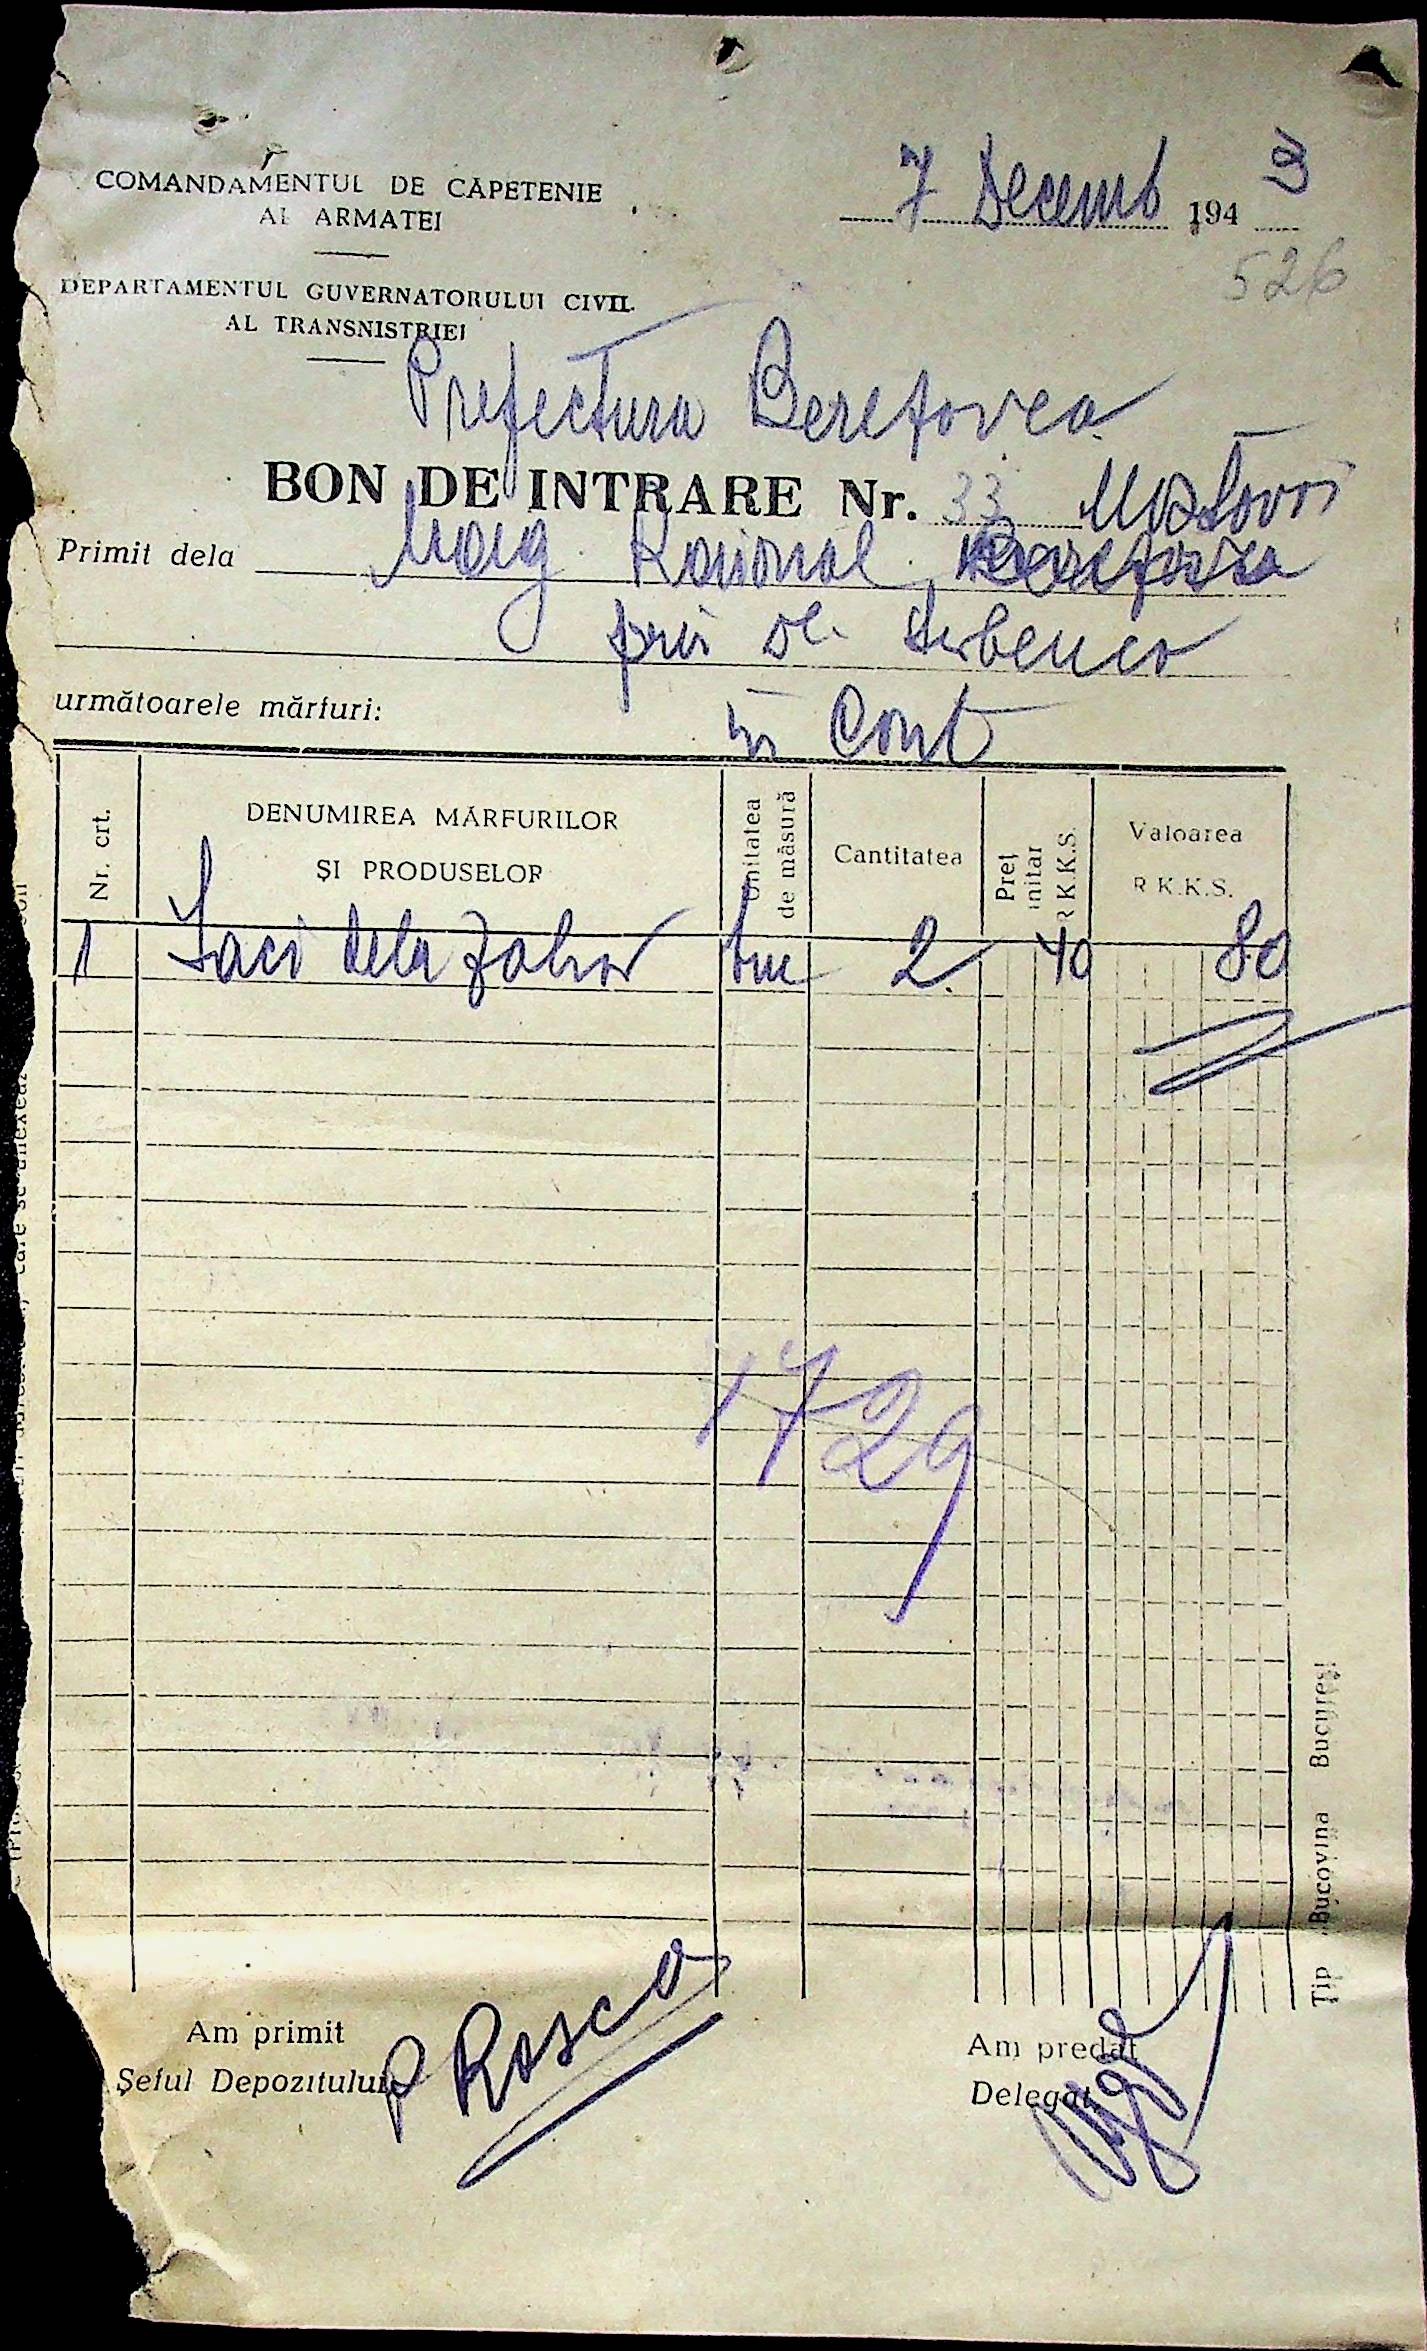 COMANDAMENTUL DE CĂPETENIE
AL ARMATEI
7 Decemb 1943
526
DEPARTAMENTUL GUVERNATORULUI CIVIL
AL TRANSNISTRIEI
Prefectura Berefovca
BON DE INTRARE Nr. 33 Mostovoi
Primit dela Mag Raional
prin Dl. Serbenco
următoarele mărfuri: in Cont
Nr. crt. DENUMIREA MĂRFURILOR ȘI PRODUSELOR Unitatea de măsură Cantitatea Preț unitar R K.K.S. Valoarea R K.K.S.
1 Saci dela Zahar buc 2 40 80
1729
Am primit
Șeful Depozitului
P Rosca
Am predat
Delegat,
Tip Bucovina București
care se anexează